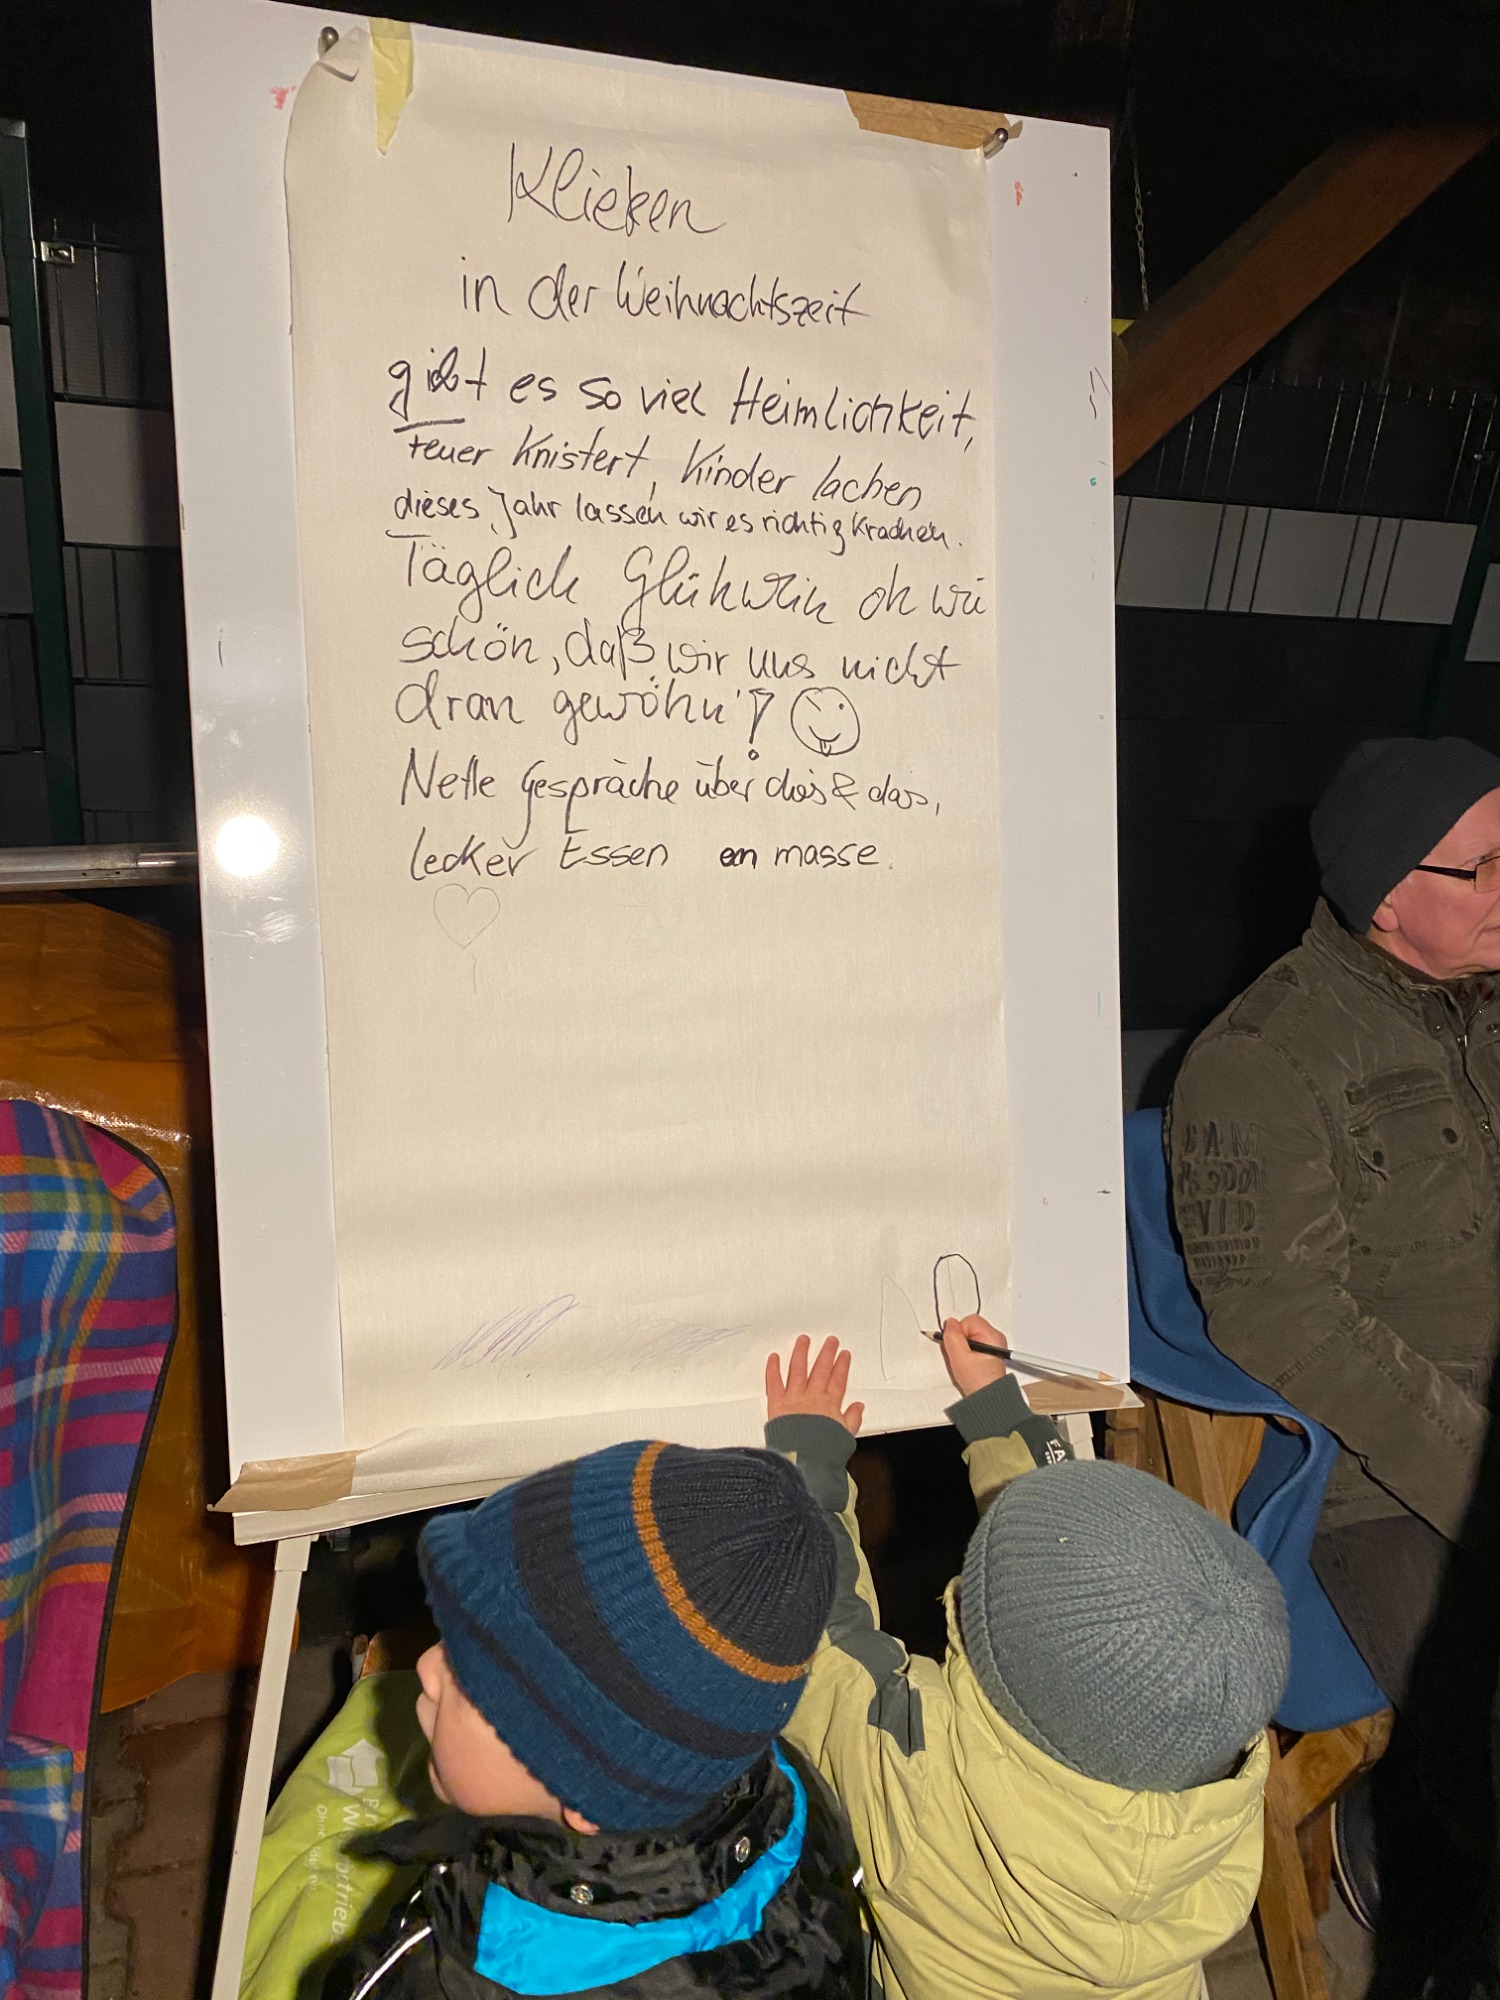 Klieken
in der Weihnachtszeit
gibt es so viel Heimlichkeit,
Feuer Knistert, Kinder lachen
dieses Jahr lassen wir es richtig Krachen.
Täglich Glühwein oh wie
schön, daß wir uns nicht
dran gewöhn'!
Nette Gespräche über dies & das,
lecker Essen en masse.